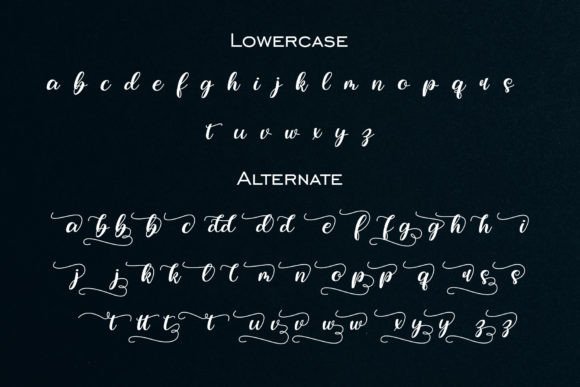 LOWERCASE
a b c d e f g h i j k l m n o p q r s
t u v w x y z
ALTERNATE
a b b b c dd d d e f f g g h h i
j j k k l l m n o p p q r s s
t tt t t u v v w w x y y z z